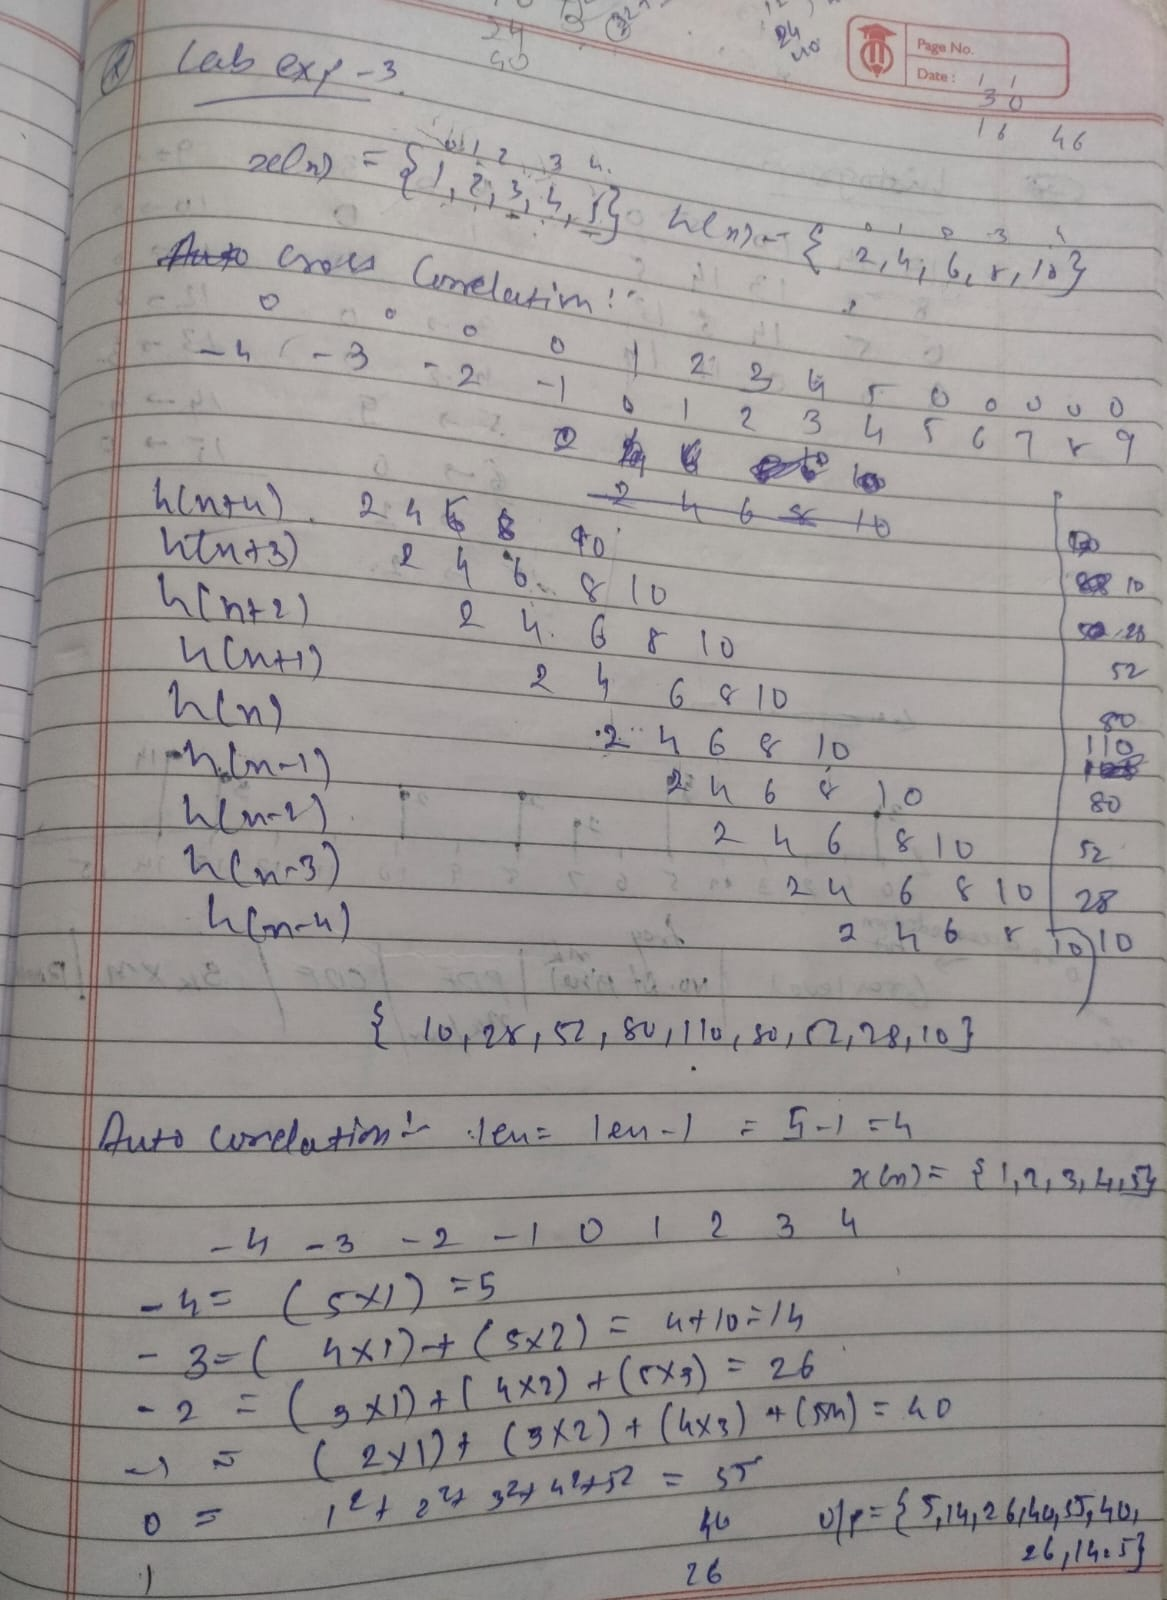 24
40
24
40
Page No.
Date :
30
16 46
Lab exp - 3.
0 1 2 3 4
x(n) = {1, 2, 3, 4, 5} h(n) = { 2, 4, 6, 8, 10}
Auto Cross Correlation :-
0 0 0 0 1 2 3 4 5 0 0 0 0 0
-4 -3 -2 -1 0 1 2 3 4 5 6 7 8 9
2 4 6 8 10
h(n+4) 2 4 6 8 10
h(n+3) 2 4 6 8 10 10
h(n+2) 2 4 6 8 10 28
h(n+1) 2 4 6 8 10 52
h(n) 2 4 6 8 10 80
110
h(n-1) 2 4 6 8 10 80
h(n-2) 2 4 6 8 10 52
h(n-3) 2 4 6 8 10 28
h(n-4) 2 4 6 8 10 10
{ 10, 28, 52, 80, 110, 80, 52, 28, 10}
Auto correlation :- len = len - 1 = 5 - 1 = 4
x(n) = { 1, 2, 3, 4, 5}
-4 -3 -2 -1 0 1 2 3 4
-4 = (5x1) = 5
-3 = ( 4x1) + (5x2) = 4+10=14
-2 = (3x1) + (4x2) + (5x3) = 26
-1 = (2x1) + (3x2) + (4x3) + (5x4) = 40
0 = 1²+ 2²+ 3²+ 4²+5² = 55
40 o/p = { 5, 14, 26, 40, 55, 40,
1 26 26, 14, 5}